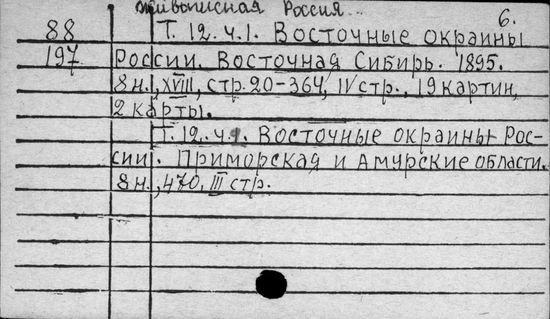 Живописная Россия...
6.
88 Т. 12. ч.1. Восточные окраины
197 России. Восточная Сибирь. 1895.
8н., XVIII, стр. 20-364, IV стр., 19 картин,
2 карты.
Т. 12. ч. Восточные окраины Рос-
сии. Приморская и Амурские области.
8н., 470, III стр.